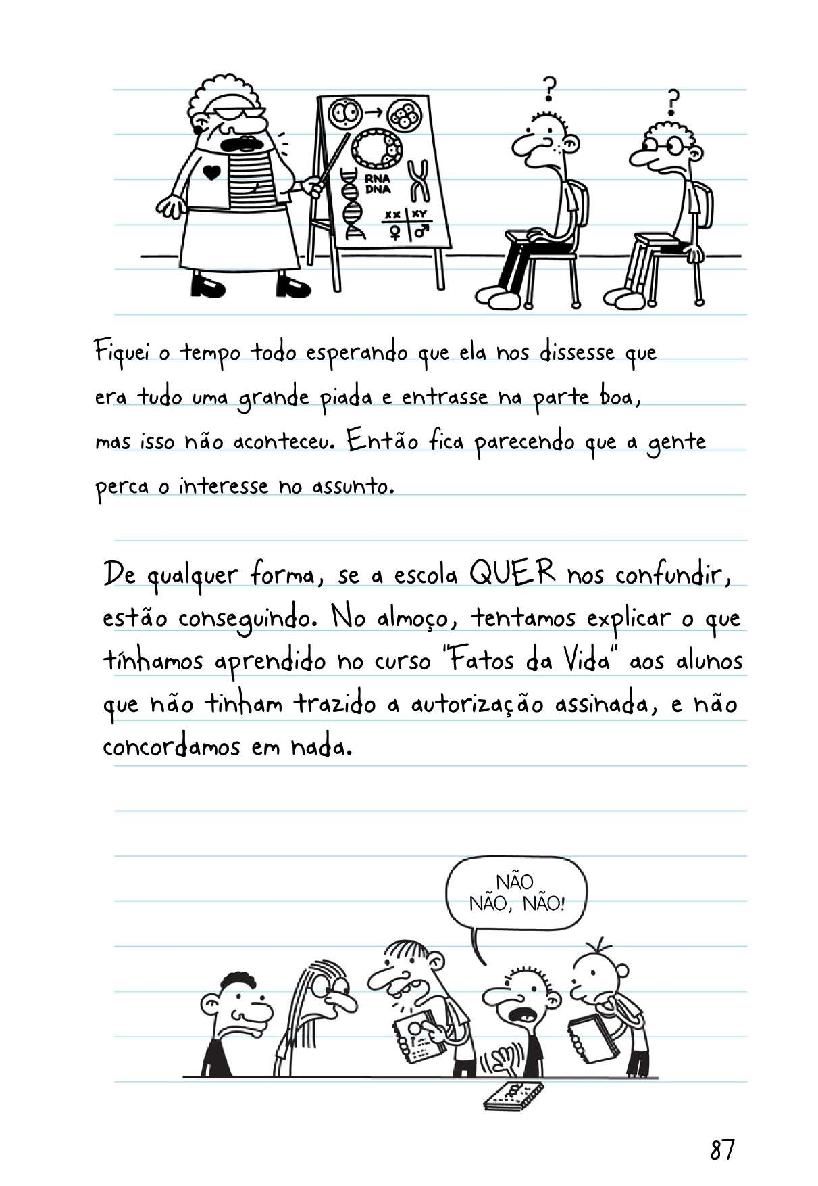 ?
?
RNA
DNA
XX XY
♀ ♂
Fiquei o tempo todo esperando que ela nos dissesse que
era tudo uma grande piada e entrasse na parte boa,
mas isso não aconteceu. Então fica parecendo que a gente
perca o interesse no assunto.
De qualquer forma, se a escola QUER nos confundir,
estão conseguindo. No almoço, tentamos explicar o que
tínhamos aprendido no curso "Fatos da Vida" aos alunos
que não tinham trazido a autorização assinada, e não
concordamos em nada.
NÃO
NÃO, NÃO!
87